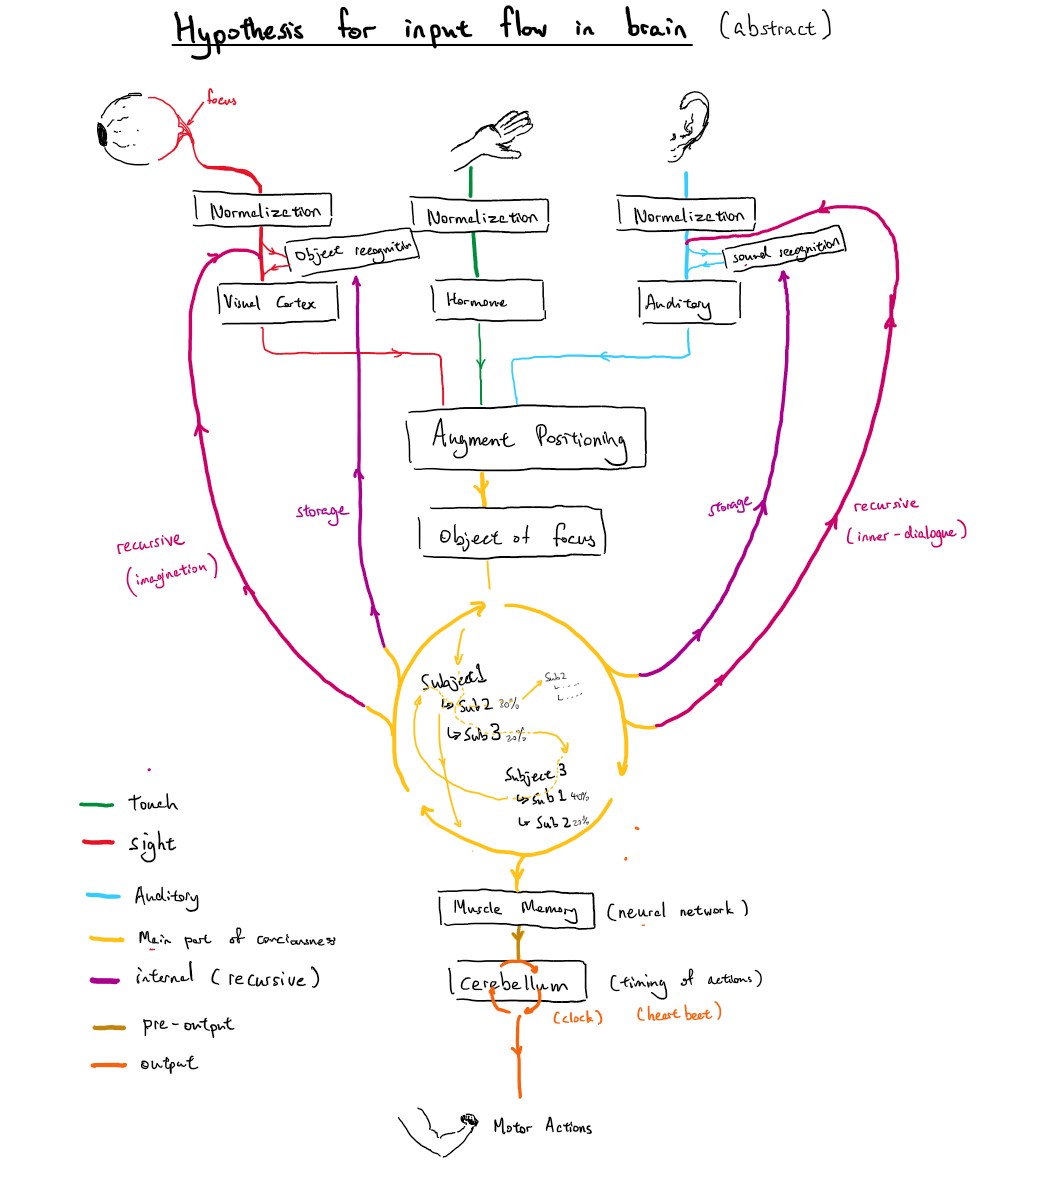 Hypothesis for input flow in brain (abstract)
focus
Normalization
Normalization
Normalization
Object recognition
sound recognition
Visual Cortex
Hormone
Auditory
Augment Positioning
Object of focus
storage
storage
recursive
(imagination)
recursive
(inner-dialogue)
Subject 1
↳ Sub2 30%
↳ Sub 3 20%
Sub2
Subject 3
↳ Sub 1 40%
↳ Sub 2 20%
touch
sight
Auditory
Main part of conciousness
internal (recursive)
pre-output
output
Muscle Memory
(neural network)
Cerebellum
(timing of actions)
(clock)
(heart beat)
Motor Actions